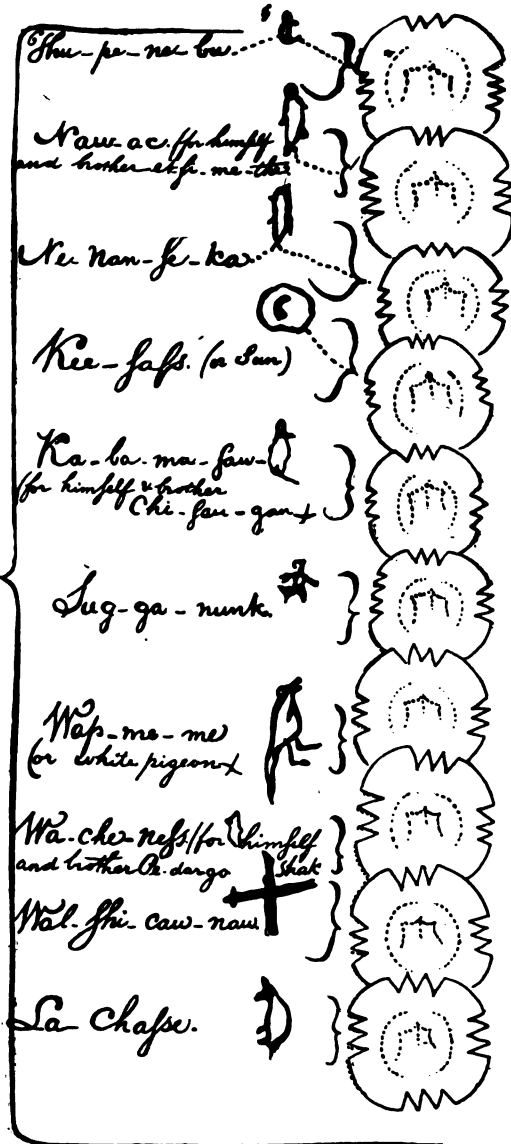 Thu-pe-ne bu
Naw-ac. (for himself
and brother
Ne Nan-se-ka
Kee-sass. (or Sun)
Ka-ba-ma-saw-
(for himself & brother
Chi-sau-gan +
Sug-ga-nunk.
Wap-me-me
(or white pigeon +
Wa-che-ness (for himself
and brother Pe-dargo Shak
Wal-shi-caw-naw
La Chasse.